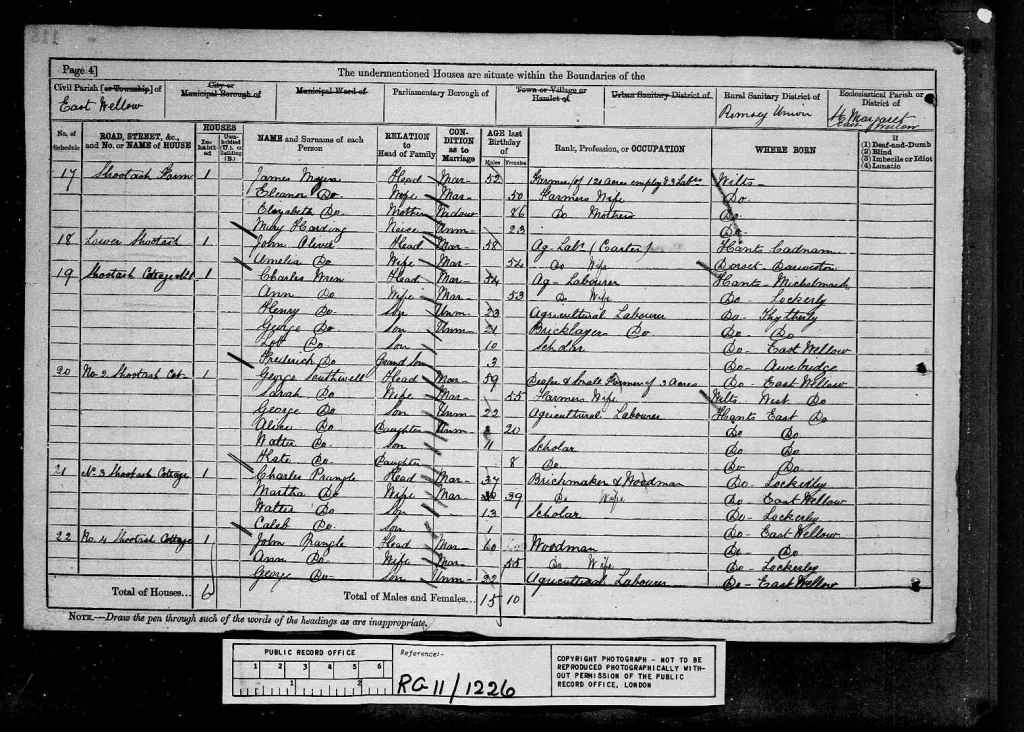 Page 4]
The undermentioned Houses are situate within the Boundaries of the
Civil Parish [or Township] of City or Municipal Borough of Municipal Ward of Parliamentary Borough of Town or Village or Hamlet of Urban Sanitary District of Rural Sanitary District of Ecclesiastical Parish or District of
East Wellow Romsey Union St Margaret East Wellow
No. of Schedule ROAD, STREET, &c., and No. or NAME of HOUSE HOUSES Inhabited Uninhabited (U.), or Building (B.) NAME and Surname of each Person RELATION to Head of Family CONDITION as to Marriage AGE last Birthday of Males Females Rank, Profession, or OCCUPATION WHERE BORN If (1) Deaf-and-Dumb (2) Blind (3) Imbecile or Idiot (4) Lunatic
17 Shootash Farm 1 James Head Mar- 52 Farmer of 121 acres employs 3 Labrs Wilts-
Eleanor Do. Wife Mar- 50 Farmers Wife Do.
Elizabeth Do. Mother Widow 86 Do Mothers Do.
Mary Harding Neice Unm- 23 Do-
18 Lower Shootash 1 John Head Mar- 58 Ag- Labr (Carter) Hants Cadnam
Amelia Do Wife Mar- 54 Do Wife Dorset-
19 Shootash Cottage 1 Charles Head Mar- 54 Ag- Labourer Hants- Michelmarsh
Ann Do Wife Mar- 53 Do Wife Do- Lockerly
Henry Do- Son Unm- 23 Agricultural Labourer Do-
George Do- Son Unm- 21 Bricklayers Do Do Do-
Do Son 10 Scholar Do- East Wellow
Frederick Do Grand Son 3 Do- Awbridge
20 No 2 Shootash Cot- 1 George Southwell Head Mar- 59 & Small Farmer of 3 Acres Do- East Wellow
Sarah Do. Wife Mar- 55 Farmers Wife Wilts West Do
George Do- Son Unm 22 Agricultural Labourer Hants East Do
Do. Daughter Unm- 20 Do Do
Walter Do. Son 11 Scholar Do Do
Kate Do. Daughter 8 Do- Do Do
21 No. 3 Shootash Cottage 1 Charles Prangle Head Mar- 37 Brickmaker & Woodman Do- Lockerley
Martha Do Wife Mar- 39 Do Wife Do East Wellow
Walter Do- Son 13 Scholar Do- Lockerly
Caleb Do- Son 1 Do- East Wellow
22 No. 4 Shootash Cottage 1 John Prangle Head Mar- 60 Woodman Do- Do
Ann Do- Wife Mar- 55 Do Wife Do- Lockerly
George Do- Son Unm- 22 Agricultural Labourer Do- East Wellow
Total of Houses... 6 Total of Males and Females... 15 10
NOTE.—Draw the pen through such of the words of the headings as are inappropriate.
PUBLIC RECORD OFFICE
1 2 3 4 5 6
1 2
Reference:-
RG 11/1226
COPYRIGHT PHOTOGRAPH - NOT TO BE
REPRODUCED PHOTOGRAPHICALLY WITH-
OUT PERMISSION OF THE PUBLIC
RECORD OFFICE, LONDON